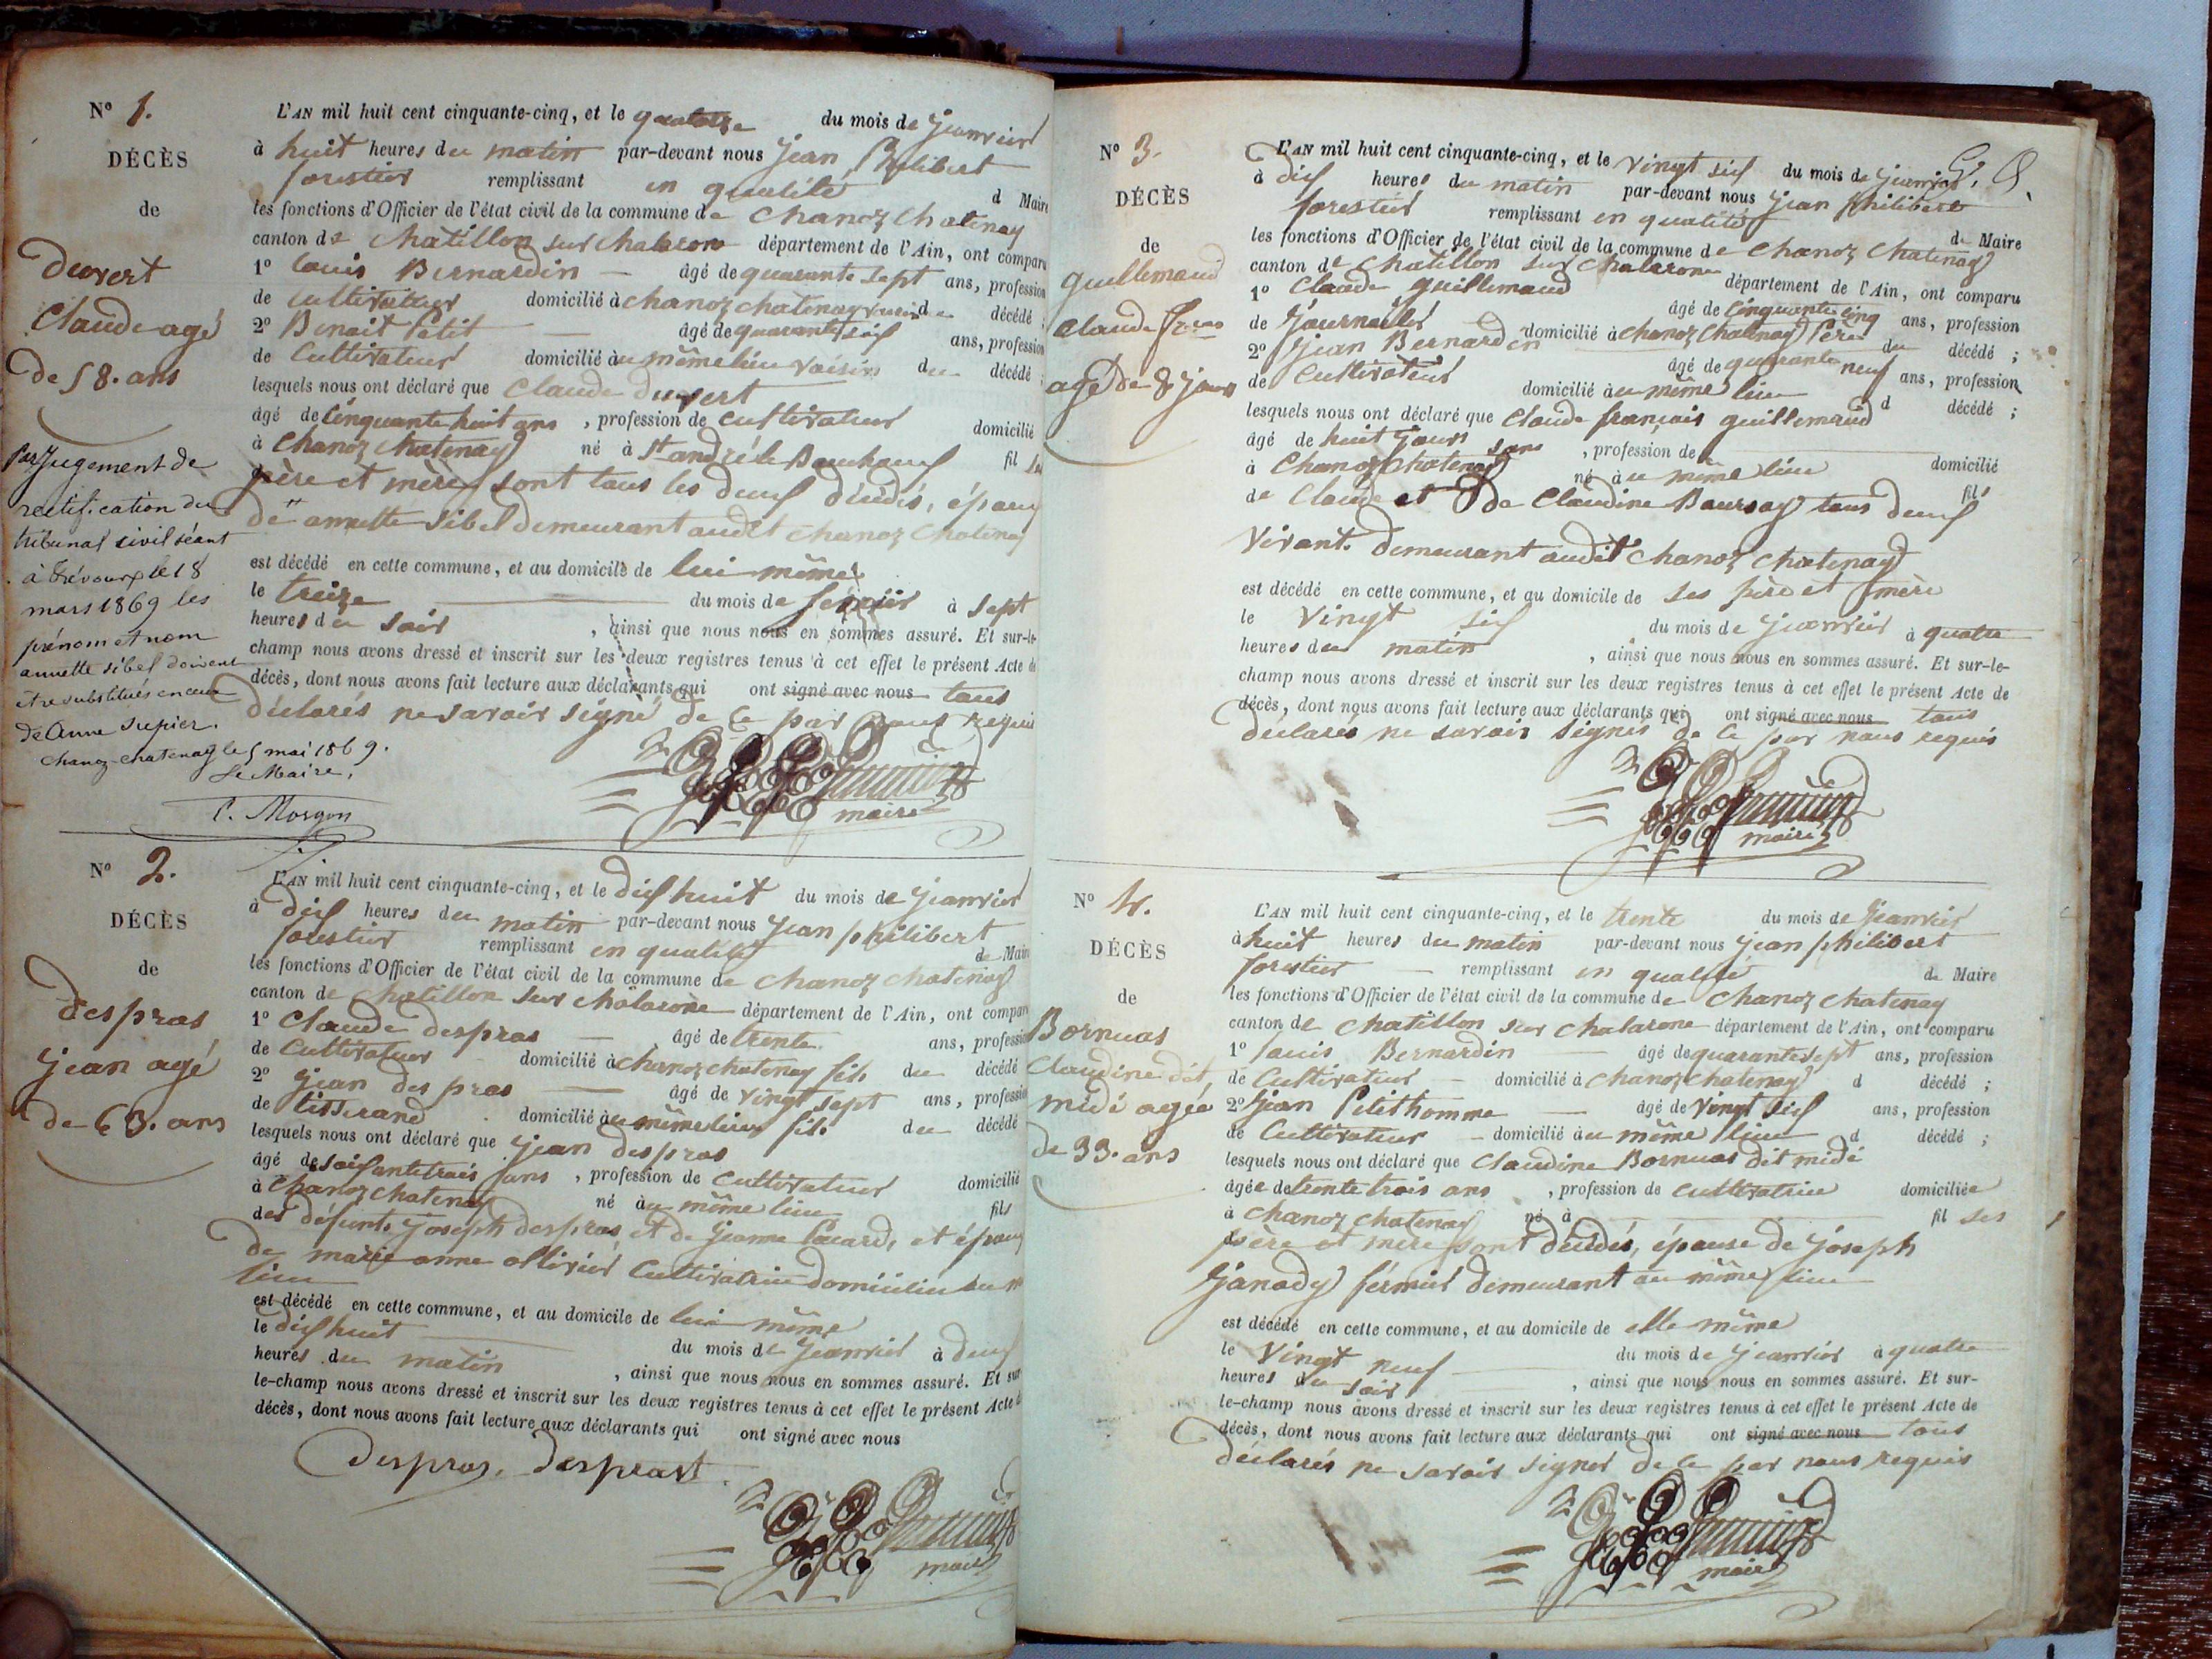 N° 1.
DÉCÈS
de
Duvert
Claude agé
de 58. ans
Par jugement de
rectification du
tribunal civil séant
à Trévoux le 18
mars 1869 les
prénom et nom
annette sibel doivent
etre substitués en ceux
de Anne supier.
Chanoz-chatenay le 5 mai 1869.
Le Maire,
C. Morgon
L'AN mil huit cent cinquante-cinq, et le quatorze du mois de Janvier
à huit heures du matin par-devant nous Jean Philibert
forestier remplissant en qualité d Maire
les fonctions d'Officier de l'état civil de la commune de Chanoz Chatenay
canton de Chatillon sur Chalarone département de l'Ain, ont comparu
1° Louis Bernardin âgé de quarante sept ans, profession
de cultivateur domicilié à Chanoz chatenay voisin d décédé ;
2° Benoit Petit âgé de quarante six ans, profession
de Cultivateur domicilié au même lieu voisin du décédé ;
lesquels nous ont déclaré que Claude duvert
âgé de Cinquante huit ans, profession de cultivateur domicilié
à Chanoz Chatenay né à St andré le Bouchoux fil ses
père et mère sont tous les deux décédés, époux
de annette sibel demeurant audit Chanoz Chatenay
est décédé en cette commune, et au domicile de lui même
le treize du mois de à sept
heures du soir, ainsi que nous nous en sommes assuré. Et sur-le-
champ nous avons dressé et inscrit sur les deux registres tenus à cet effet le présent Acte de
décès, dont nous avons fait lecture aux déclarants qui ont signé avec nous tous
déclarés ne savoir signé de ce par nous requis
maire
N° 2.
DÉCÈS
de
despras
jean agé
de 63. ans
L'AN mil huit cent cinquante-cinq, et le dix huit du mois de Janvier
à dix heures du matin par-devant nous Jean philibert
forestier remplissant en qualité de Maire
les fonctions d'Officier de l'état civil de la commune de Chanoz Chatenay
canton de Chatillon sur Chalarone département de l'Ain, ont comparu
1° Claude despras âgé de trente ans, profession
de Cultivateur domicilié à Chanoz chatenay fils du décédé
2° Jean des pras âgé de vingt sept ans, profession
de tisserand domicilié au même lieu fils du décédé
lesquels nous ont déclaré que Jean despras
âgé de soixante trois ans, profession de Cultivateur domicilié
à Chanoz chatenay né au même lieu fils
des défunts Joseph despras et de Jeanne Pacard, et époux
de marie anne ollivier Cultivatrice domiciliée au m
lieu
est décédé en cette commune, et au domicile de lui même
le dix huit du mois de Janvier à deux
heures du matin, ainsi que nous nous en sommes assuré. Et sur
le-champ nous avons dressé et inscrit sur les deux registres tenus à cet effet le présent Acte de
décès, dont nous avons fait lecture aux déclarants qui ont signé avec nous
Despras. Desprast
maire
N° 3.
DÉCÈS
de
guillemaud
Claude fcois
agé de 8 jours
L'AN mil huit cent cinquante-cinq, et le vingt six du mois de Janvier
à dix heures du matin par-devant nous Jean philibert
forestier remplissant en qualité de Maire
les fonctions d'Officier de l'état civil de la commune de Chanoz Chatenay
canton de Chatillon sur Chalarone département de l'Ain, ont comparu
1° Claude guillemaud âgé de Cinquante cinq ans, profession
de Journalier domicilié à Chanoz Chatenay Père du décédé ;
2° Jean Bernardin âgé de quarante neuf ans, profession
de Cultivateur domicilié au même lieu d décédé ;
lesquels nous ont déclaré que Claude françois guillemaud
âgé de huit jours sans, profession de domicilié
à Chanoz Chatenay né au même lieu fils
de Claude et de Claudine Boursay tous deux
Vivant. demeurant audit Chanoz Chatenay
est décédé en cette commune, et au domicile de ses père et mère
le Vingt six du mois de Janvier à quatre
heures du matin, ainsi que nous nous en sommes assuré. Et sur-le-
champ nous avons dressé et inscrit sur les deux registres tenus à cet effet le présent Acte de
décès, dont nous avons fait lecture aux déclarants qui ont signé avec nous tous
déclarés ne savoir signés de ce par nous requis
maire
N° 4.
DÉCÈS
de
Bornuas
Claudine dit
midi agée
de 33. ans
L'AN mil huit cent cinquante-cinq, et le trente du mois de Janvier
à huit heures du matin par-devant nous Jean philibert
forestier remplissant en qualité de Maire
les fonctions d'Officier de l'état civil de la commune de Chanoz Chatenay
canton de Chatillon sur Chalarone département de l'Ain, ont comparu
1° Louis Bernardin âgé de quarante sept ans, profession
de Cultivateur domicilié à Chanoz Chatenay d décédé ;
2° Jean Petithomme âgé de vingt six ans, profession
de Cultivateur domicilié au même lieu d décédé ;
lesquels nous ont déclaré que Claudine Bornuas dit midi
âgée de trente trois ans, profession de Cultivatrice domiciliée
à Chanoz Chatenay né à fil ses
père et mère sont décédés, épouse de Joseph
Janody fermier demeurant au même lieu
est décédé en cette commune, et au domicile de elle même
le Vingt neuf du mois de Janvier à quatre
heures du soir, ainsi que nous nous en sommes assuré. Et sur-
le-champ nous avons dressé et inscrit sur les deux registres tenus à cet effet le présent Acte de
décès, dont nous avons fait lecture aux déclarants qui ont signé avec nous tous
déclarés ne savoir signer de ce par nous requis
maire